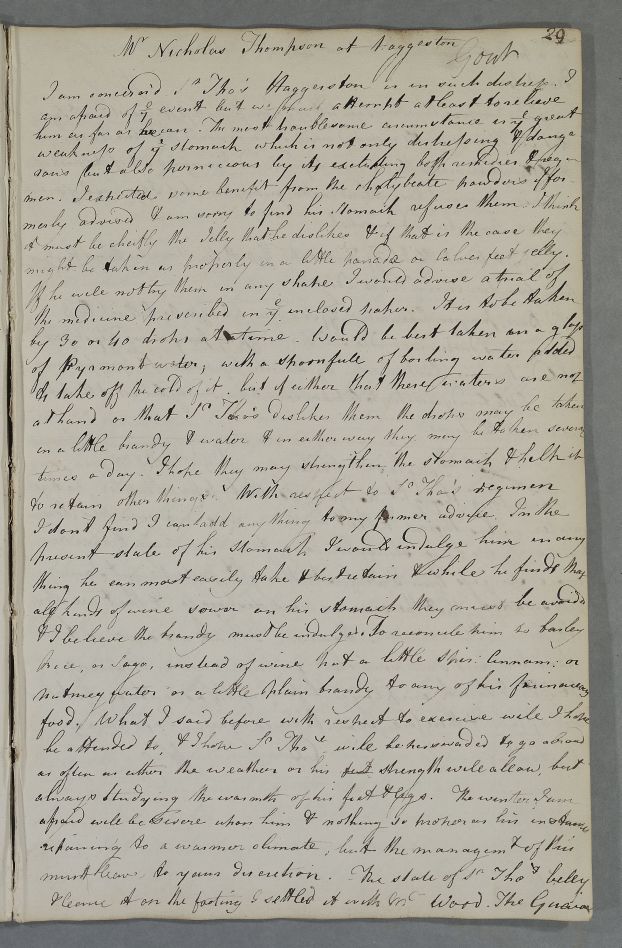 29
Mr Nicholas Thompson at Haggeston
Gout
I am concern'd Sr Tho's Haggerston is in such distress. I
am afraid of ye event but we must attempt at least to relieve
him as far as he can. The most troublesome circumstance is ye great
weakness of ye stomach which is not only distressing & dange
rous but also pernicious by its excluding both remedies & regi
men. I expected some benefit from the chalybeate powders I for
merly advised & am sorry to find his stomach refuses them. I think
it must be cheifly the Jelly that he dislikes & if that is the case they
might be taken as properly in a little panada or calves feet jelly.
If he will not try them in any shape I would advise a trial of
the medicine prescribed in ye inclosed paper. It is to be taken
by 30 or 40 drops at a time. Would be best taken in a glass
of Pyrmont water, with a spoonfull of boiling water added
to take off the cold of it. but if either that these waters are not
at hand or that Sr Tho's dislikes them the drops may be taken
in a little brandy & water & in either way they may be taken several
times a day. I hope they may strengthen the stomach & help it
to retain other things. With respect to Sr Tho's regimen
I don't find I can add any thing to my former advise. In the
present state of his stomach I would indulge him in any
thing he can most easily take & best retain & while he finds that
all kinds of wine sower on his stomach they must be avoided
& I believe the brandy must be indulged. To reconcile him to barley
Rice, or Sago, instead of wine put a little Spir: Cinnam: or
nutmeg water or a little plain brandy to any of his farinaceous
food. What I said before with respect to exercise will I hope
be attended to, & I hope Sr Tho's will be perswaded to go abroad
as often as either the weather or his strength will allow, but
always studying the warmth of his feet & legs. The winter I am
afraid will be severe upon him & nothing so proper as his instantly
repairing to a warmer climate, but the managemt of this
must leave to your discretion. The state of Sr Tho's belly
I leave it on the footing I settled it with Mr Wood. The